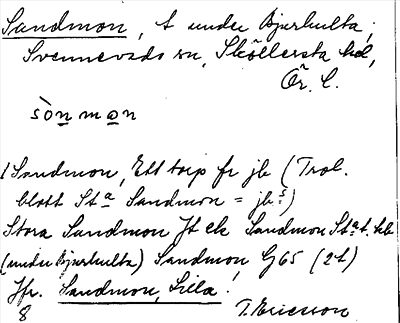 Sandmon, t under Bjurhulta,
Svennevads sn, Sköllersta hd,
Ör. l.
sònmon
1 Sandmon, Ett torp fr jb (Trol.
blott St.ª Sandmon = jb:s)
Stora Sandmon Jt ek Sandmon St.ª t. hb
(under Bjurhulta) Sandmon, G65 (2t)
Jfr. Sandmon, Lilla!
8 T. Ericsson